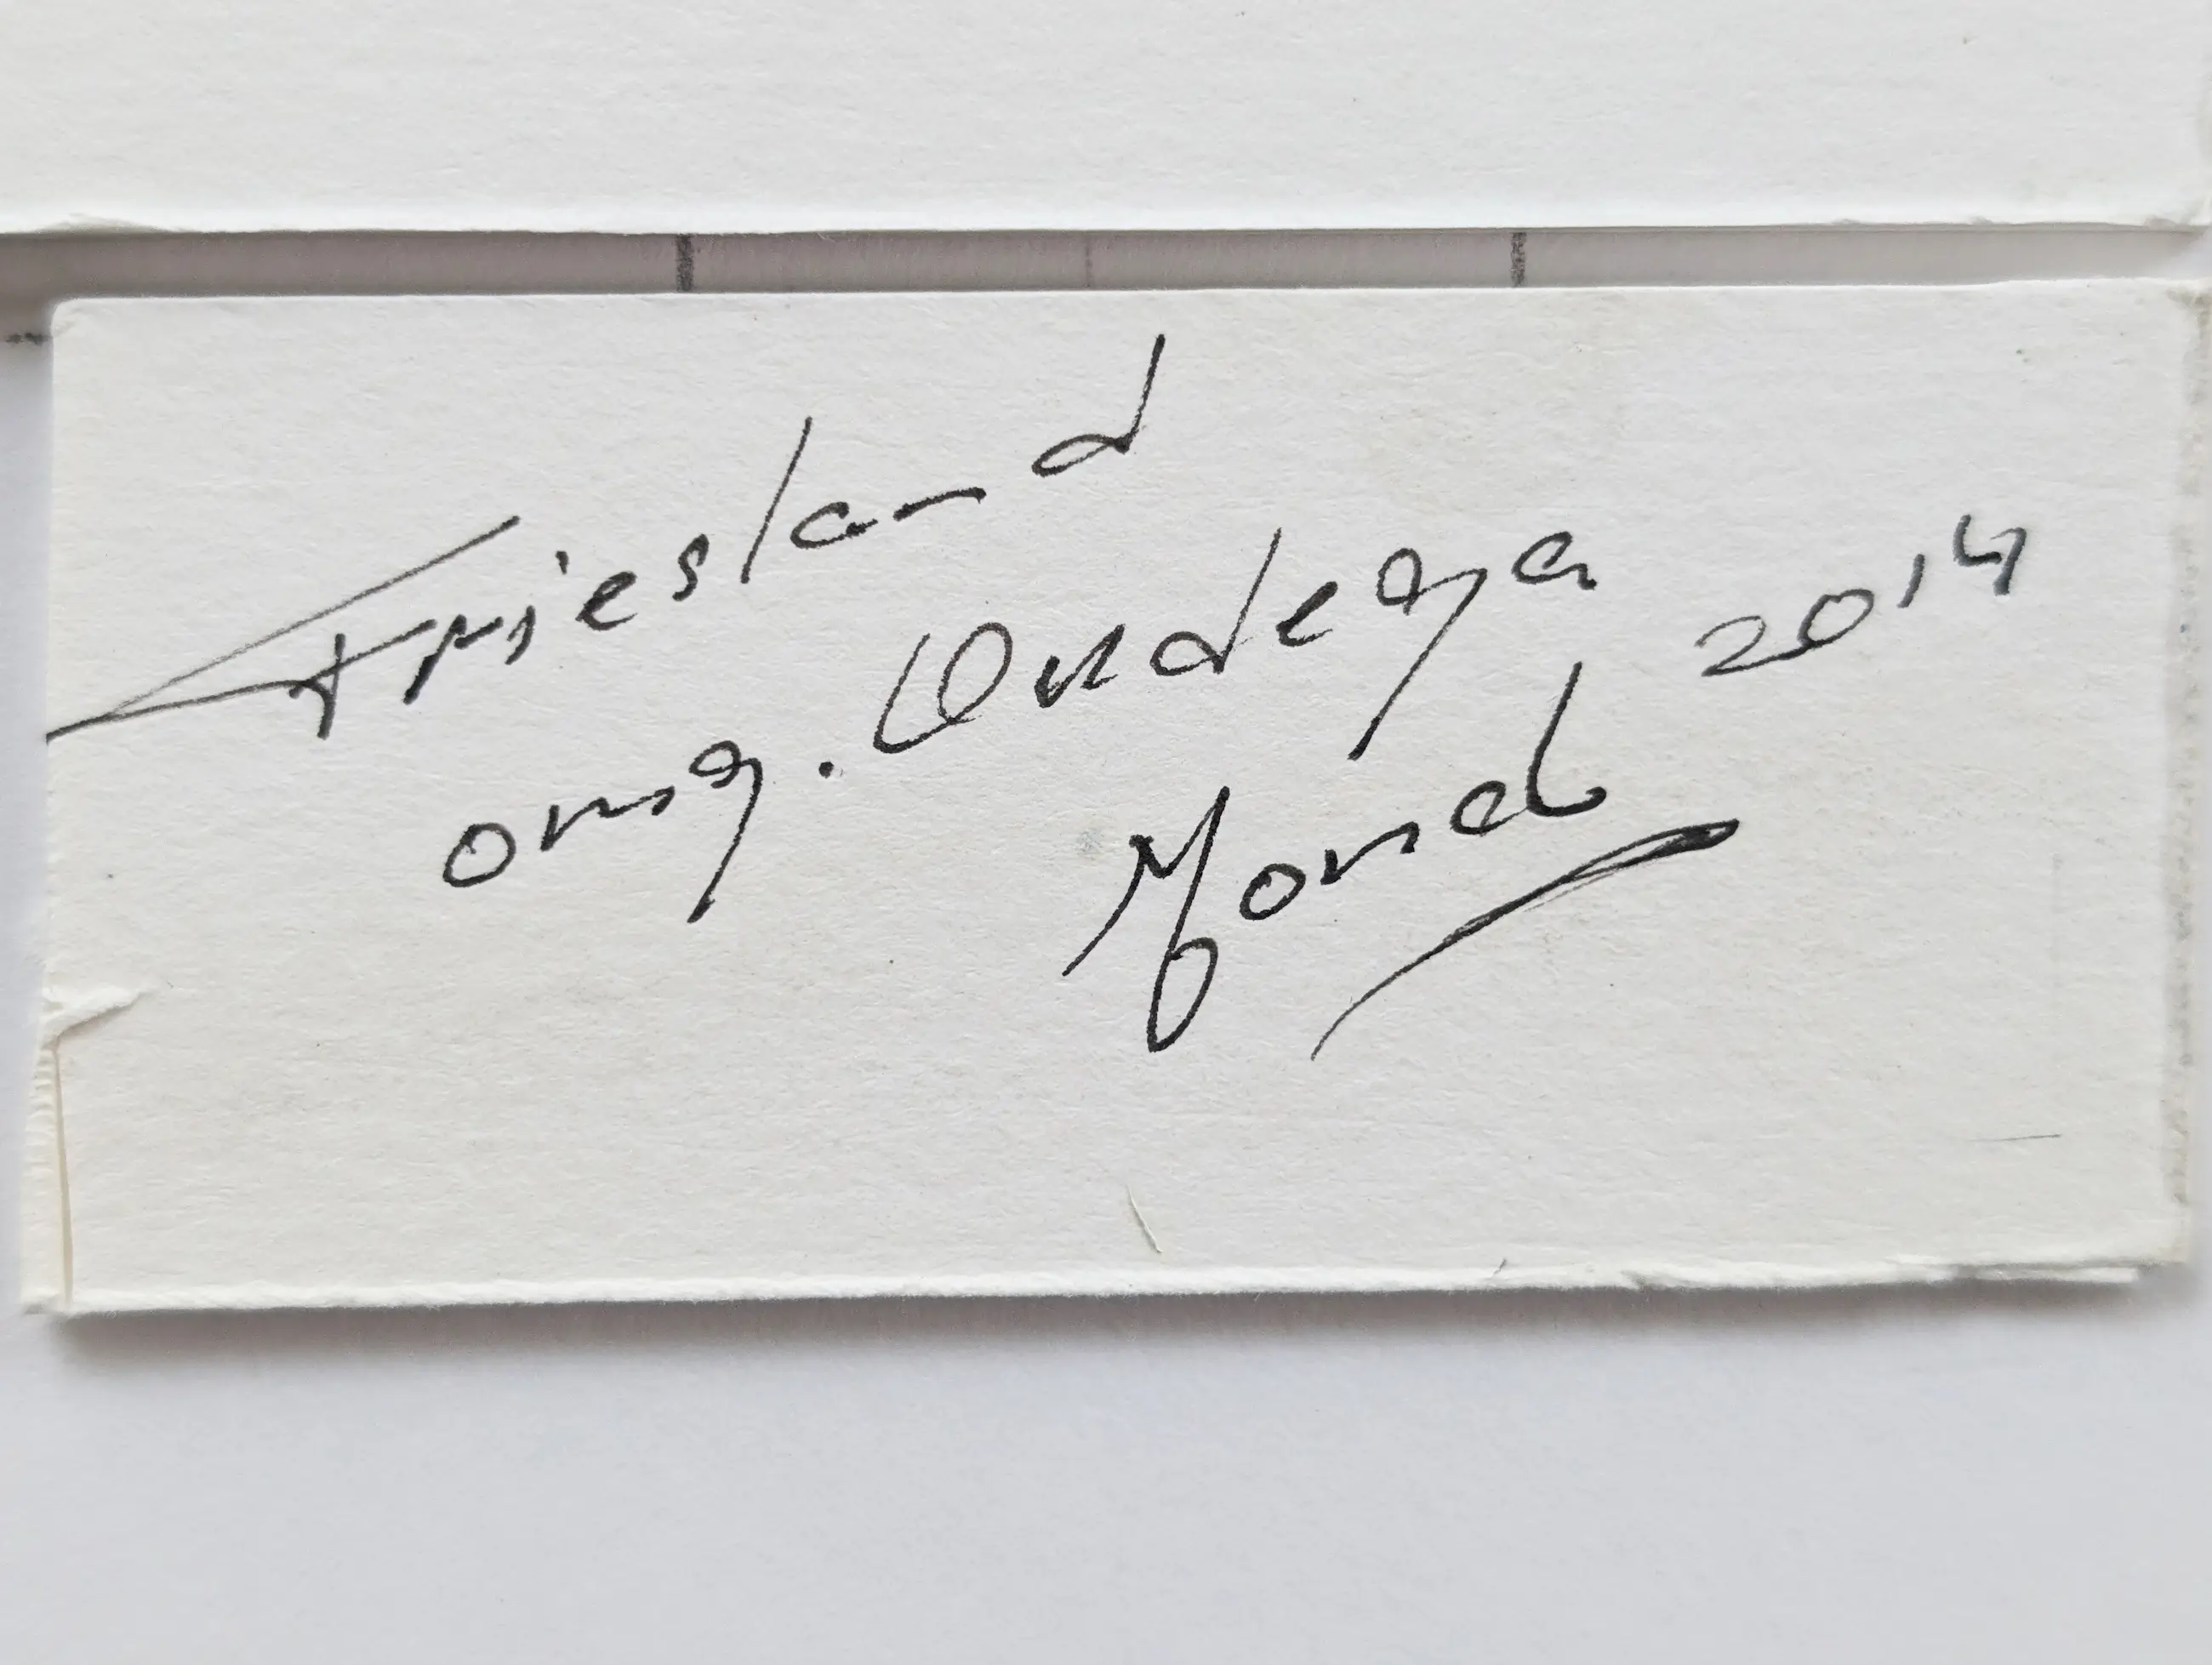 Friesland
omg. Oudega
Maart 2014